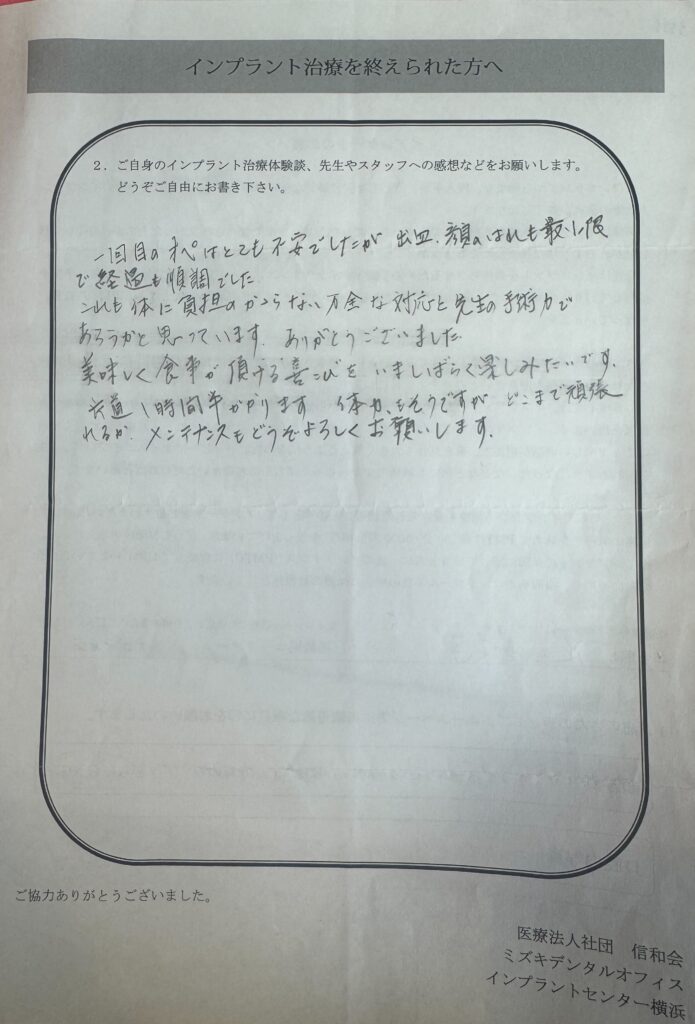 インプラント治療を終えられた方へ
２．ご自身のインプラント治療体験談、先生やスタッフへの感想などをお願いします。
どうぞご自由にお書き下さい。
一回目のオペはとても不安でしたが 出血、顔のはれも最小限
で経過も順調でした
これも体に負担のかからない万全な対応と先生の手術力で
あろうかと思っています。ありがとうございました
美味しく食事が頂ける喜こびをいましばらく楽しみたいです。
片道1時間半かかります 体力もそうですが どこまで頑張
れるか、メンテナンスもどうぞよろしくお願いします。
ご協力ありがとうございました。
医療法人社団 信和会
ミズキデンタルオフィス
インプラントセンター横浜